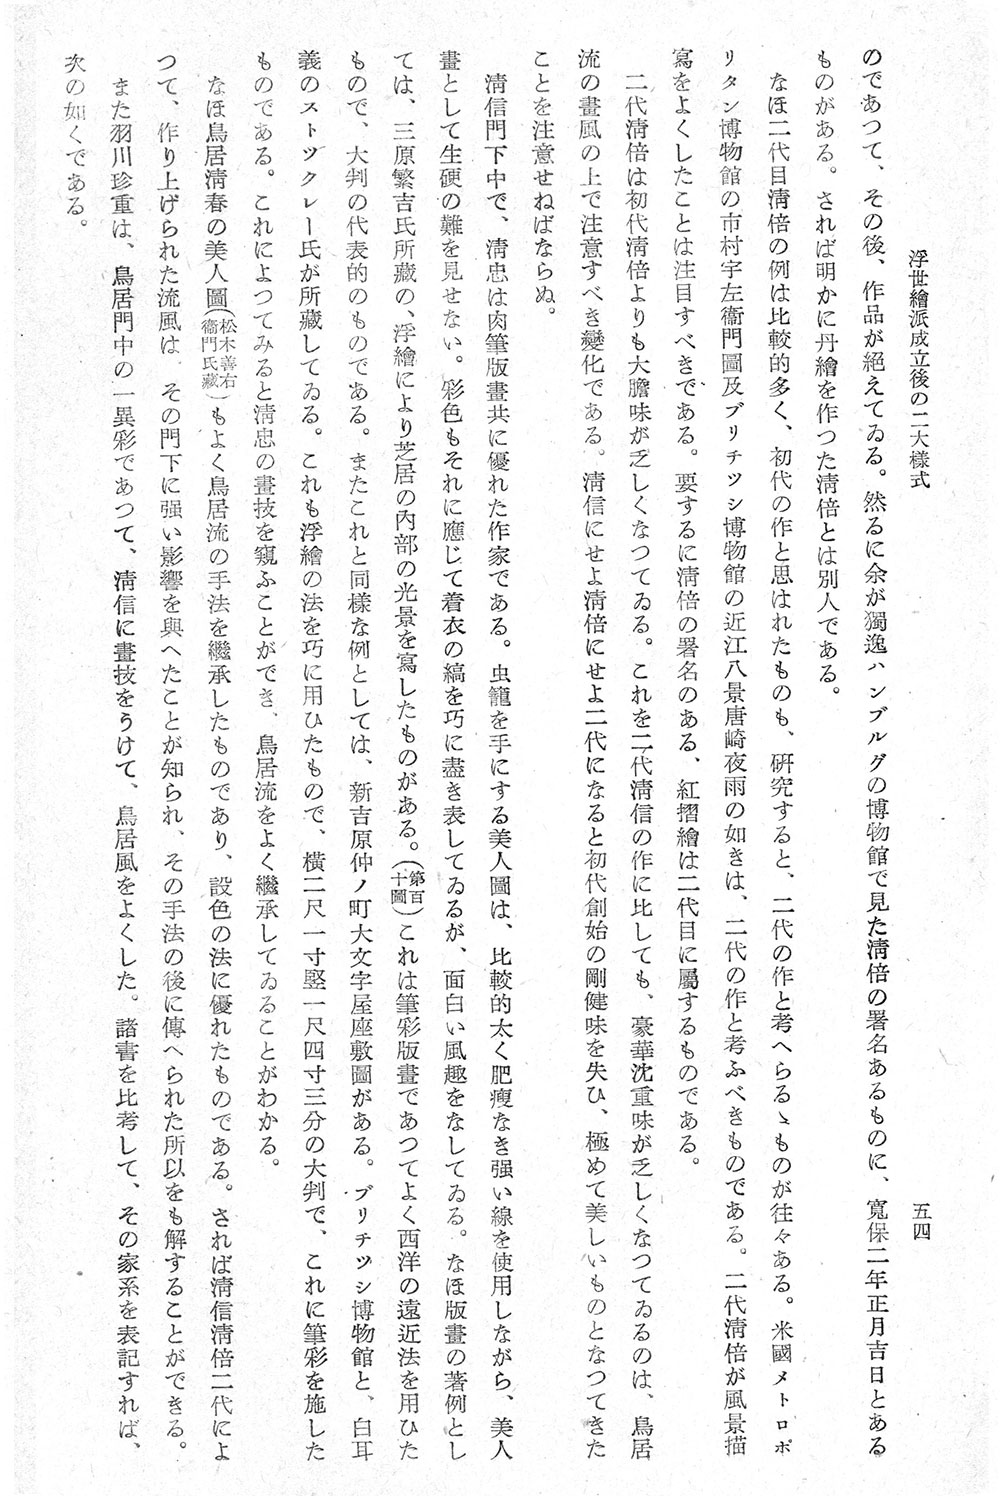 浮世繪派成立後の二大樣式
五四
のであつて、その後、作品が絕えてゐる。然るに余が獨逸ハンブルグの博物館で見た淸倍の署名あるものに、寬保二年正月吉日とある
ものがある。されば明かに丹繪を作つた淸倍とは別人である。
なほ二代目淸倍の例は比較的多く、初代の作と思はれたものも、硏究すると、二代の作と考へらるゝものが往々ある。米國メトロポ
リタン博物館の市村宇左衞門圖及ブリチツシ博物館の近江八景唐崎夜雨の如きは、二代の作と考ふべきものである。二代淸倍が風景描
寫をよくしたことは注目すべきである。要するに淸倍の署名のある、紅摺繪は二代目に屬するものである。
二代淸倍は初代淸倍よりも大膽味が乏しくなつてゐる。これを二代淸信の作に比しても、豪華沈重味が乏しくなつてゐるのは、鳥居
流の畫風の上で注意すべき變化である。淸信にせよ淸倍にせよ二代になると初代創始の剛健味を失ひ、極めて美しいものとなつてきた
ことを注意せねばならぬ。
淸信門下中で、淸忠は肉筆版畫共に優れた作家である。虫籠を手にする美人圖は、比較的太く肥瘦なき强い線を使用しながら、美人
畫として生硬の難を見せない。彩色もそれに應じて着衣の縞を巧に畫き表してゐるが、面白い風趣をなしてゐる。なほ版畫の著例とし
ては、三原繁吉氏所藏の、浮繪により芝居の內部の光景を寫したものがある。(第百十圖)これは筆彩版畫であつてよく西洋の遠近法を用ひた
もので、大判の代表的のものである。またこれと同樣な例としては、新吉原仲ノ町大文字屋座敷圖がある。ブリチツシ博物館と、白耳
義のストツクレー氏が所藏してゐる。これも浮繪の法を巧に用ひたもので、橫二尺一寸竪一尺四寸三分の大判で、これに筆彩を施した
ものである。これによつてみると淸忠の畫技を窺ふことができ、鳥居流をよく繼承してゐることがわかる。
なほ鳥居淸春の美人圖(松木善右衞門氏藏)もよく鳥居流の手法を繼承したものであり、設色の法に優れたものである。されば淸信淸倍二代によ
つて、作り上げられた流風は その門下に强い影響を與へたことが知られ、その手法の後に傳へられた所以をも解することができる。
また羽川珍重は、鳥居門中の一異彩であつて、淸信に畫技をうけて、鳥居風をよくした。諸書を比考して、その家系を表記すれば、
次の如くである。